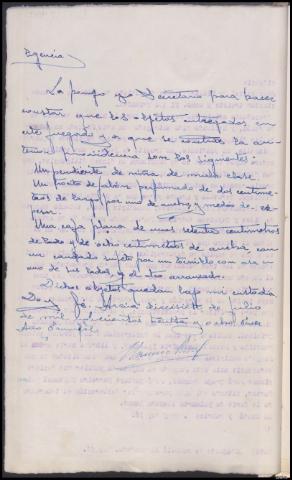 Diligencia
La pongo yo Secretario para hacer
constar que los objetos entregados en
este juzgado y a que se contrae la an-
terior providencia son los siguientes:
Un pendiente de niña de mala clase.
Un trozo de jabón perfumado de dos centime-
tros de largo por uno de ancho y medio de es-
pesor.
Una caja plana de unos setenta centímetros
de lado y de ocho centímetros de ancha, con
un candado sujeto por un tornillo con asa en
uno de sus lados, y el otro arrancado.
Dichos objetos quedan bajo mi custodia
Doy fé.
de julio
de mil ochocientos
y ocho